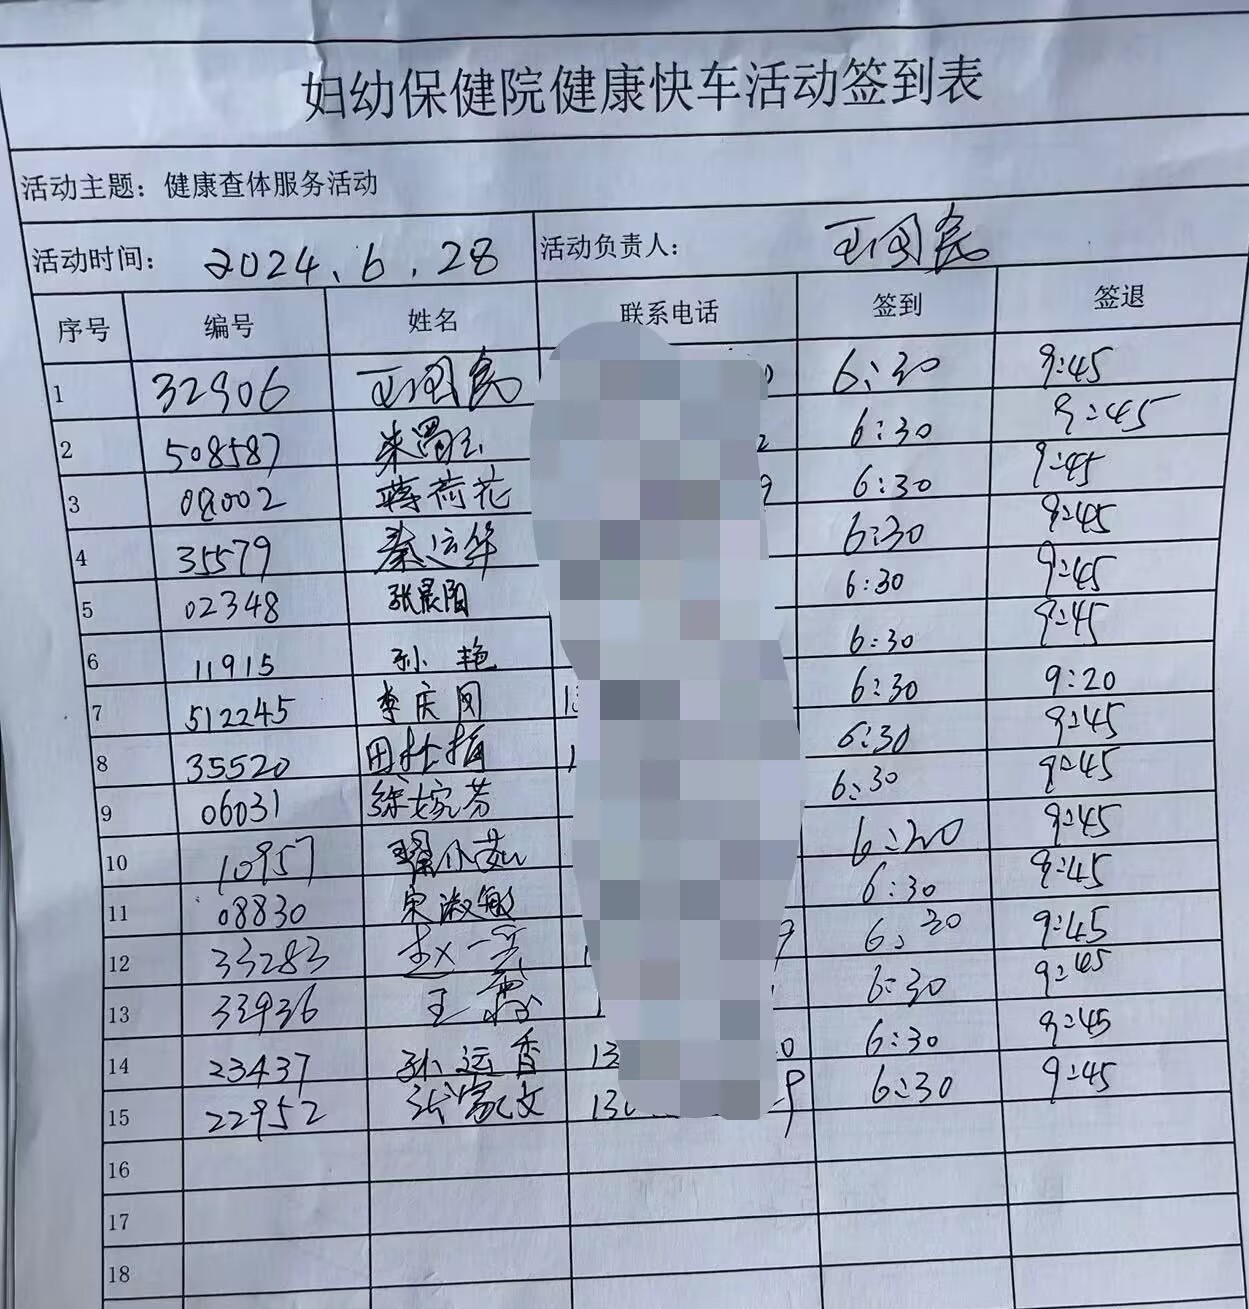 妇幼保健院健康快车活动签到表
活动主题：健康查体服务活动
活动时间： 2024.6.28 活动负责人： 王国良
序号 编号 姓名 联系电话 签到 签退
1 32906 王国良 6:30 9:45
2 508587 6:30 9:45
3 08002 蒋荷花 6:30 9:45
4 35579 秦运华 6:30 9:45
5 02348 张晨阳 6:30 9:45
6 11915 孙艳 6:30 9:45
7 512245 李庆园 13 6:30 9:20
8 35520 田桂梅 6:30 9:45
9 06031 徐婉芳 6:30 9:45
10 10957 翟小茹 6:20 9:45
11 08830 宋淑敏 6:30 9:45
12 33283 赵一 6:30 9:45
13 33936 王霞 6:30 9:45
14 23437 孙远香 13 0 6:30 9:45
15 22952 张家文 130 9 6:30 9:45
16
17
18